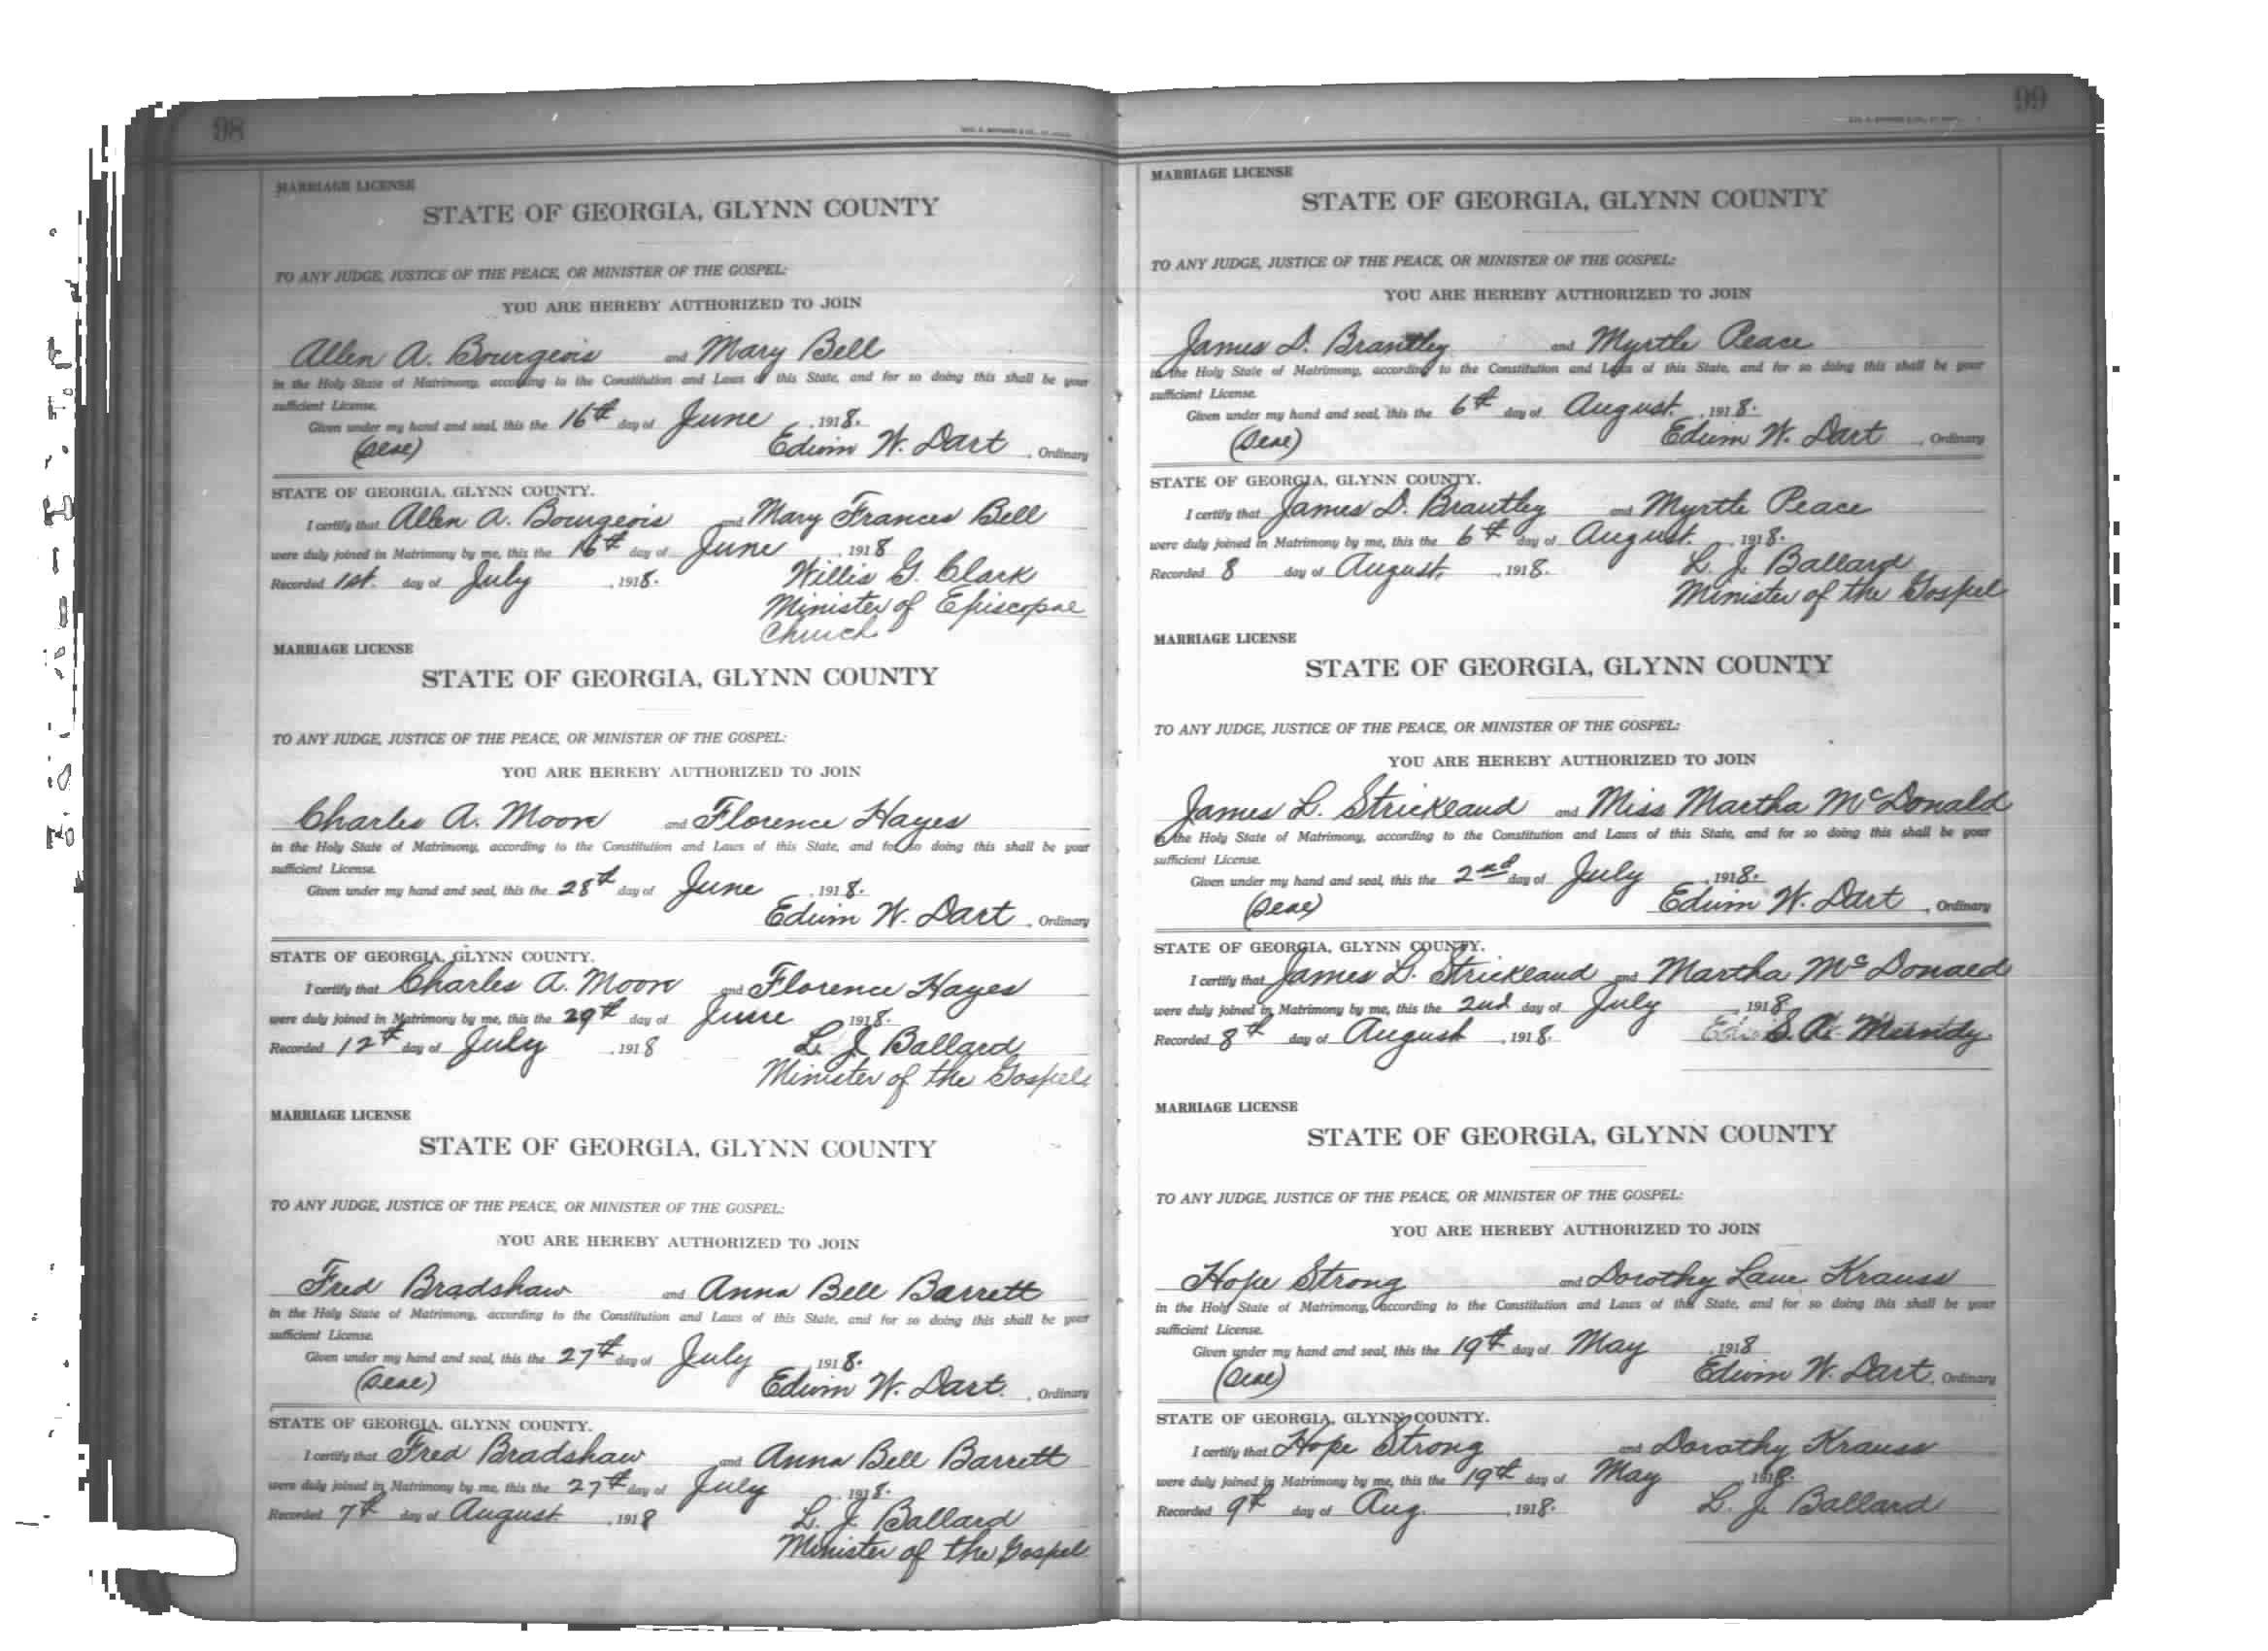 98
MARRIAGE LICENSE
STATE OF GEORGIA, GLYNN COUNTY
TO ANY JUDGE, JUSTICE OF THE PEACE, OR MINISTER OF THE GOSPEL:
YOU ARE HEREBY AUTHORIZED TO JOIN
Allen A. Bourgeois and Mary Bell
in the Holy State of Matrimony, according to the Constitution and Laws of this State, and for so doing this shall be your
sufficient License.
Given under my hand and seal, this the 16th day of June, 1918.
(Seal) Edwin W. Dart, Ordinary
STATE OF GEORGIA, GLYNN COUNTY.
I certify that Allen A. Bourgeois and Mary Frances Bell
were duly joined in Matrimony by me, this the 16th day of June, 1918
Recorded 1st. day of July, 1918. Willis G. Clark
Minister of Episcopal
Church
MARRIAGE LICENSE
STATE OF GEORGIA, GLYNN COUNTY
TO ANY JUDGE, JUSTICE OF THE PEACE, OR MINISTER OF THE GOSPEL:
YOU ARE HEREBY AUTHORIZED TO JOIN
Charles A. Moore and Florence Hayes
in the Holy State of Matrimony, according to the Constitution and Laws of this State, and for so doing this shall be your
sufficient License.
Given under my hand and seal, this the 28th day of June, 1918.
Edwin W. Dart, Ordinary
STATE OF GEORGIA, GLYNN COUNTY.
I certify that Charles A. Moore and Florence Hayes
were duly joined in Matrimony by me, this the 29th day of June, 1918.
Recorded 12th day of July, 1918 L. J. Ballard
Minister of the Gospel
MARRIAGE LICENSE
STATE OF GEORGIA, GLYNN COUNTY
TO ANY JUDGE, JUSTICE OF THE PEACE, OR MINISTER OF THE GOSPEL:
YOU ARE HEREBY AUTHORIZED TO JOIN
Fred Bradshaw and Anna Bell Barrett
in the Holy State of Matrimony, according to the Constitution and Laws of this State, and for so doing this shall be your
sufficient License.
Given under my hand and seal, this the 27th day of July, 1918.
(Seal) Edwin W. Dart, Ordinary
STATE OF GEORGIA, GLYNN COUNTY.
I certify that Fred Bradshaw and Anna Bell Barrett
were duly joined in Matrimony by me, this the 27th day of July, 1918.
Recorded 7th day of August, 1918 L. J. Ballard
Minister of the Gospel
99
MARRIAGE LICENSE
STATE OF GEORGIA, GLYNN COUNTY
TO ANY JUDGE, JUSTICE OF THE PEACE, OR MINISTER OF THE GOSPEL:
YOU ARE HEREBY AUTHORIZED TO JOIN
James D. Brantley and Myrtle Peace
in the Holy State of Matrimony, according to the Constitution and Laws of this State, and for so doing this shall be your
sufficient License.
Given under my hand and seal, this the 6th day of August, 1918.
(Seal) Edwin W. Dart, Ordinary
STATE OF GEORGIA, GLYNN COUNTY.
I certify that James D. Brantley and Myrtle Peace
were duly joined in Matrimony by me, this the 6th day of August, 1918.
Recorded 8 day of August, 1918. L. J. Ballard
Minister of the Gospel
MARRIAGE LICENSE
STATE OF GEORGIA, GLYNN COUNTY
TO ANY JUDGE, JUSTICE OF THE PEACE, OR MINISTER OF THE GOSPEL:
YOU ARE HEREBY AUTHORIZED TO JOIN
James L. Strickland and Miss Martha McDonald
in the Holy State of Matrimony, according to the Constitution and Laws of this State, and for so doing this shall be your
sufficient License.
Given under my hand and seal, this the 2nd day of July, 1918.
(Seal) Edwin W. Dart, Ordinary
STATE OF GEORGIA, GLYNN COUNTY.
I certify that James L. Strickland and Martha McDonald
were duly joined in Matrimony by me, this the 2nd day of July, 1918
Recorded 8th day of August, 1918. Mundy
MARRIAGE LICENSE
STATE OF GEORGIA, GLYNN COUNTY
TO ANY JUDGE, JUSTICE OF THE PEACE, OR MINISTER OF THE GOSPEL:
YOU ARE HEREBY AUTHORIZED TO JOIN
Hope Strong and Dorothy Lane Krauss
in the Holy State of Matrimony, according to the Constitution and Laws of this State, and for so doing this shall be your
sufficient License.
Given under my hand and seal, this the 19th day of May, 1918
(Seal) Edwin W. Dart, Ordinary
STATE OF GEORGIA, GLYNN COUNTY.
I certify that Hope Strong and Dorothy Krauss
were duly joined in Matrimony by me, this the 19th day of May, 1918.
Recorded 9th day of Aug., 1918. L. J. Ballard